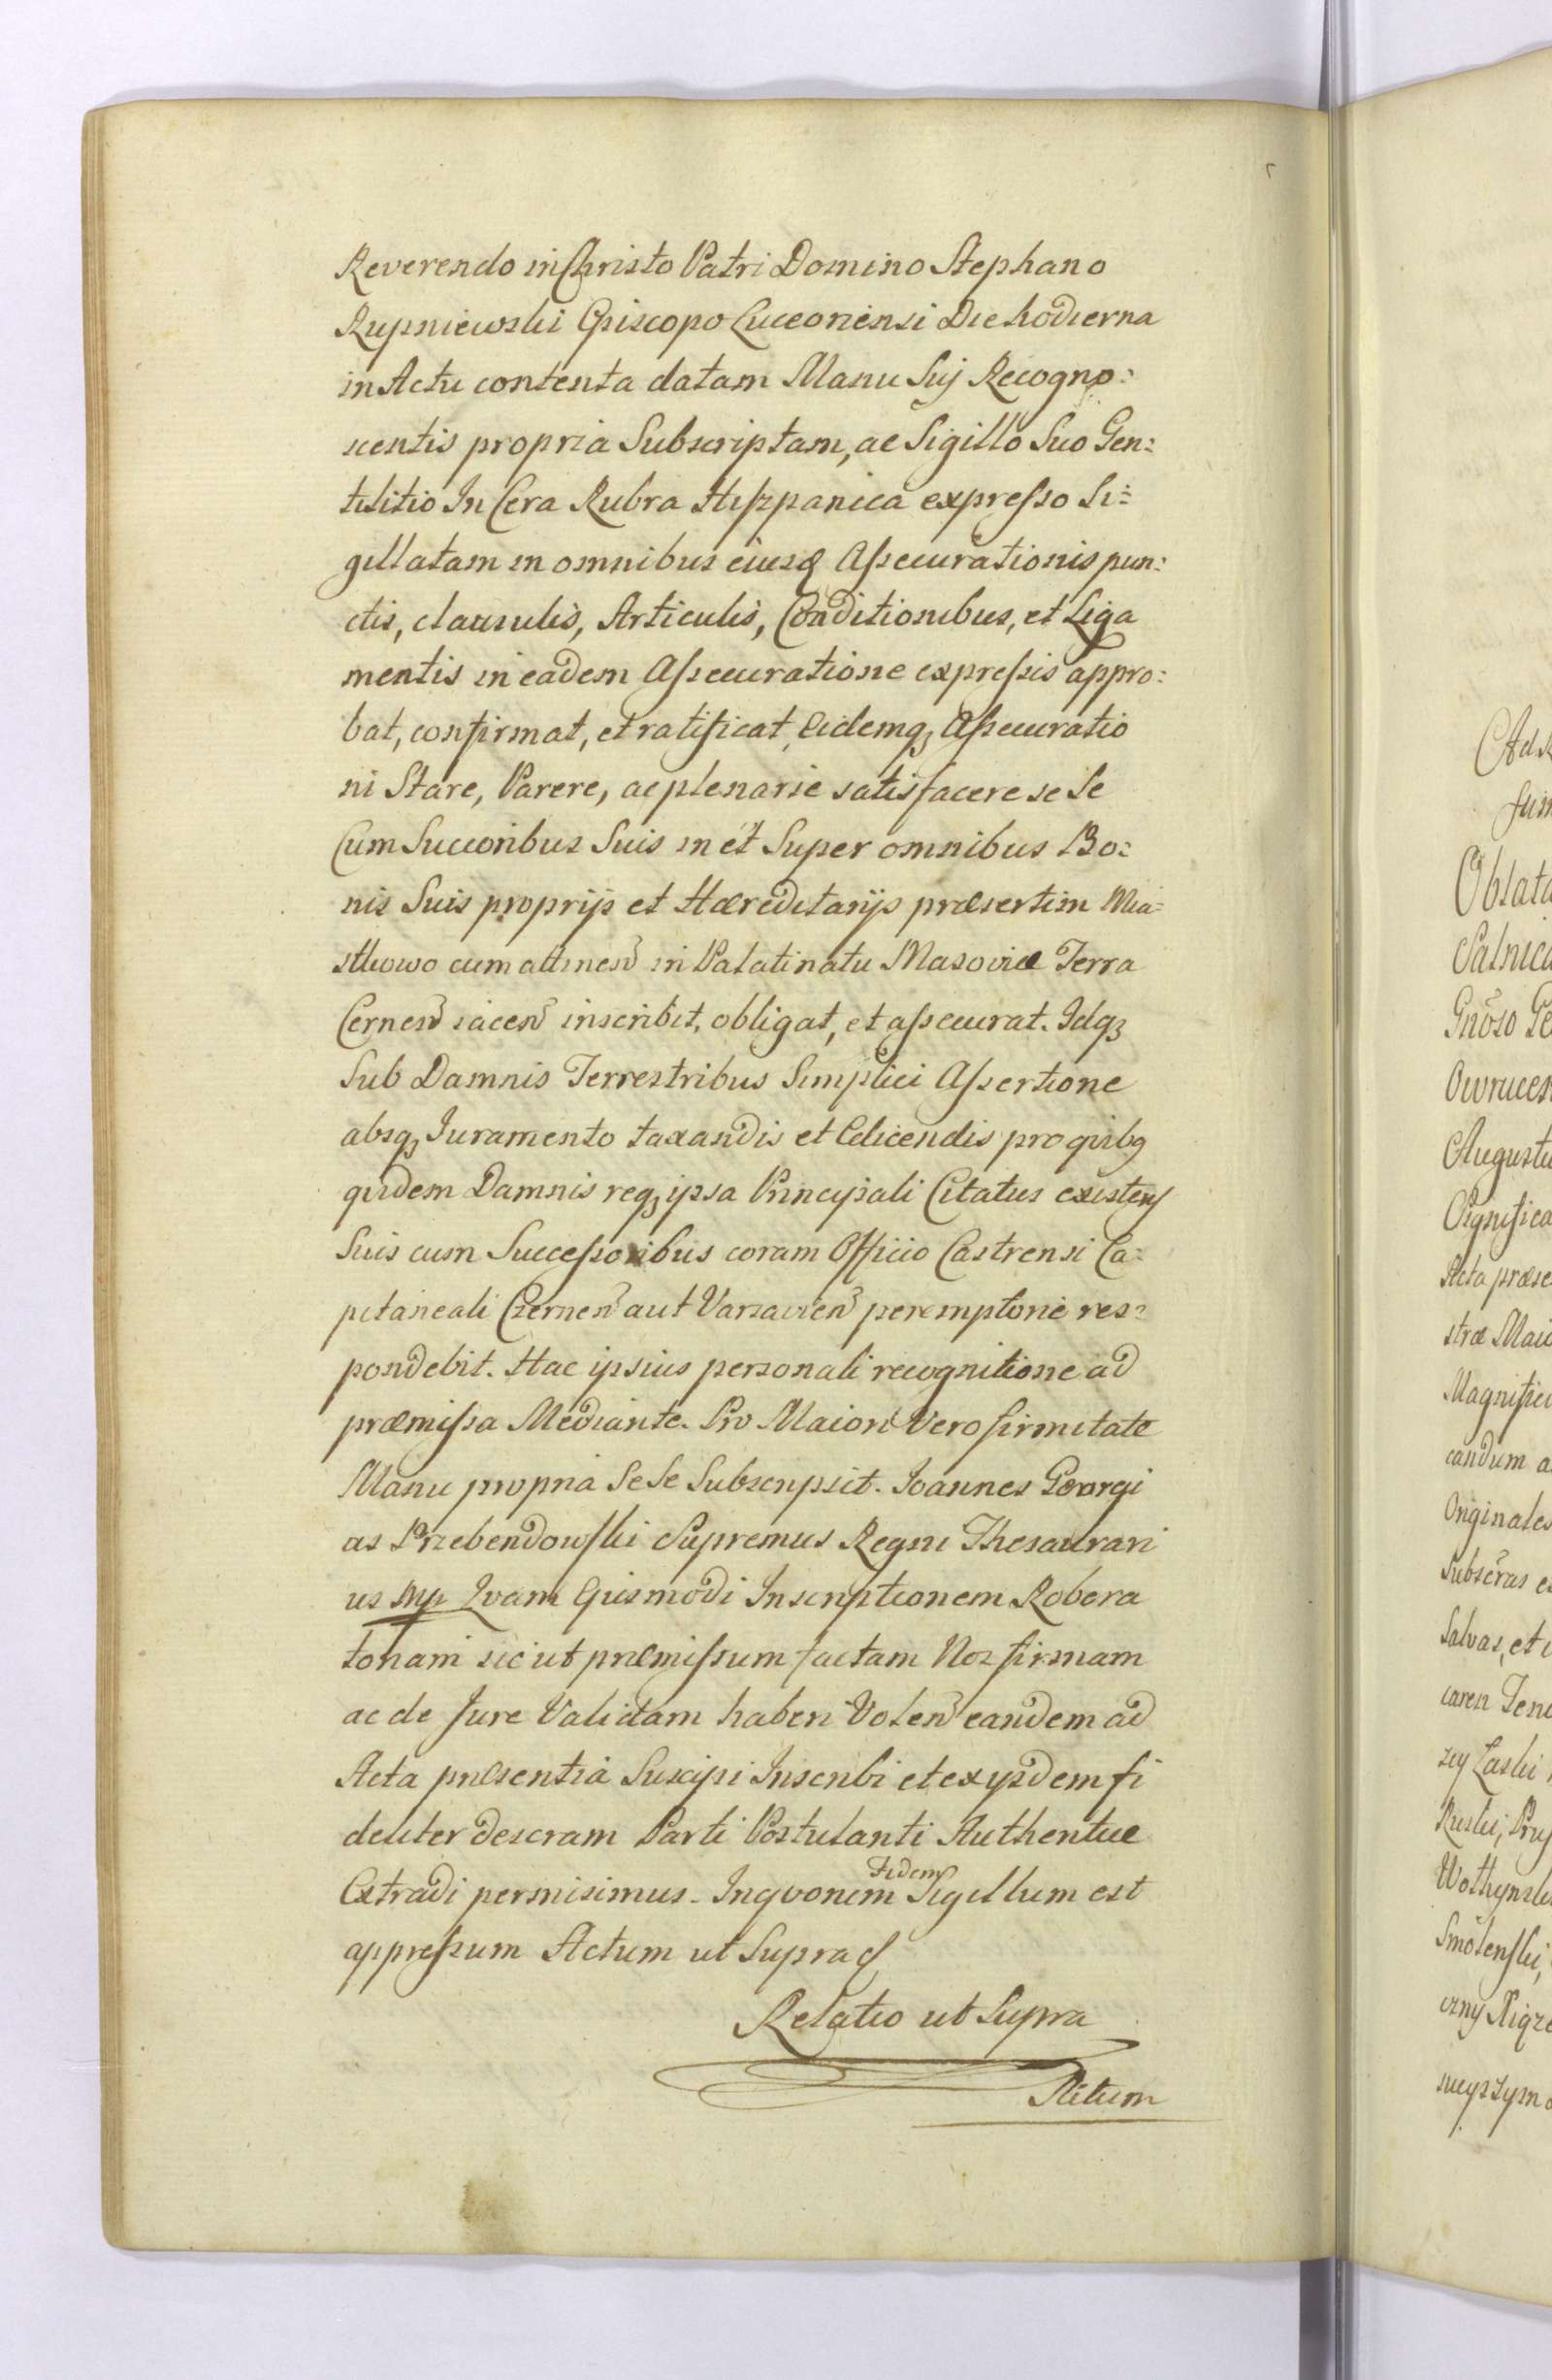 Reverendo in Christo Patri Domino Stephano
Rupniewski Episcopo Luceoriensi Die hodierna
in Actu contenta datam Manu Sui Recogno:
scentis propria Subscriptam, ac Sigillo Suo Gen:
tilitio In Cera Rubra Hiszpanica expresso Si=
gillatam in omnibus eiusq Assecurationis pun:
ctis, clausulis, Articulis, Conditionibus, et Liga
mentis in eadem Assecuratione expressis appro:
bat, confirmat, et ratificat, Eidemq3 Assecuratio
ni Stare, Parere, ac plenarie satisfacere se Se
Cum Succoribus Suis in et Super omnibus Bo:
nis Suis proprijs et Hæreditarijs præsertim Mia=
stkowo cum attinen in Palatinatu Masoviæ Terra
Cernen iacen inscribit, obligat, et assecurat. Idq3
Sub Damnis Terrestribus Simplici Assertione
absq3 Iuramento taxandis et Edicendis pro quibq
quidem Damnis req3 ipsa Principali Citatus existens
Suis cum Successoribus coram Officio Castrensi Ca:
pitaneali Czernen aut Varsavien peremptorie res=
pondebit. Hac ipsius personali recognitione ad
præmissa Mediante. Pro Maiori Vero firmitate
Manu propria Se Se Subscripsit. Ioannes Georgi
as Przebendowski Supremus Regni Thesaurari
us mp Qvam Eiusmodi Inscriptionem Robora
toriam sic ut præmissum factam Nos firmam
ac de Jure Validam haberi Volen eandem ad
Acta præsentia Suscipi Inscribi et ex ijsdem fi
deliter descram Parti Postulanti Authentice
Extradi permisimus. In qvorum Fidem Sigillum est
appressum Actum ut Supra
Relatio ut Supra
Oblata
Augustu
Magnific
candum a
Originales
Salvas, et